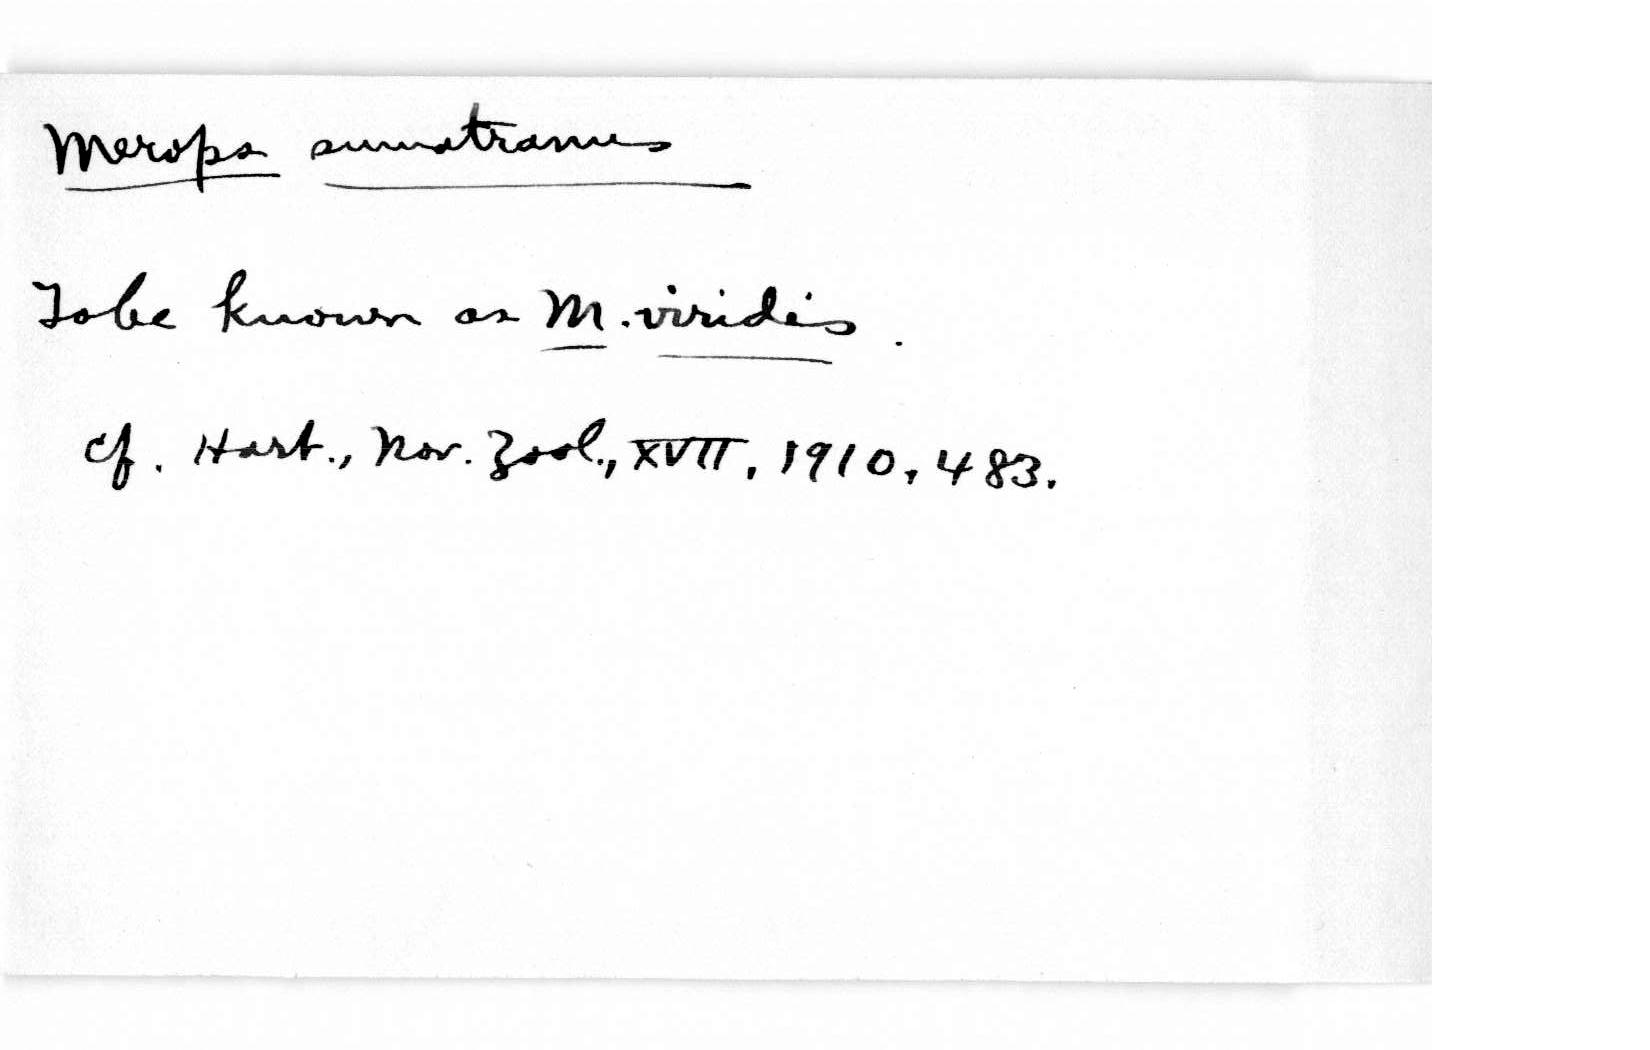 Merops sumatranus
To be known as M. viridis.
cf. Hart., Nov. Zool., XVII, 1910, 483.